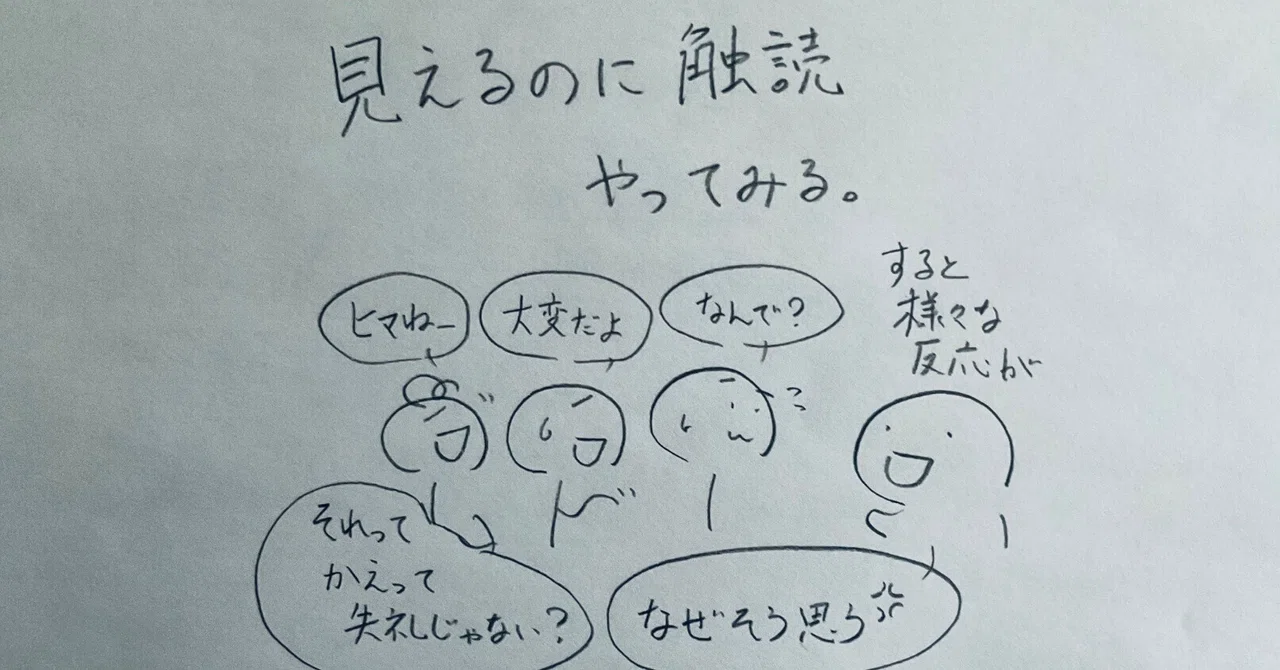 見えるのに触読
やってみる。
すると
様々な
反応が
ヒマねー
大変だよ
なんで?
それって
かえって
失礼じゃない?
なぜそう思う